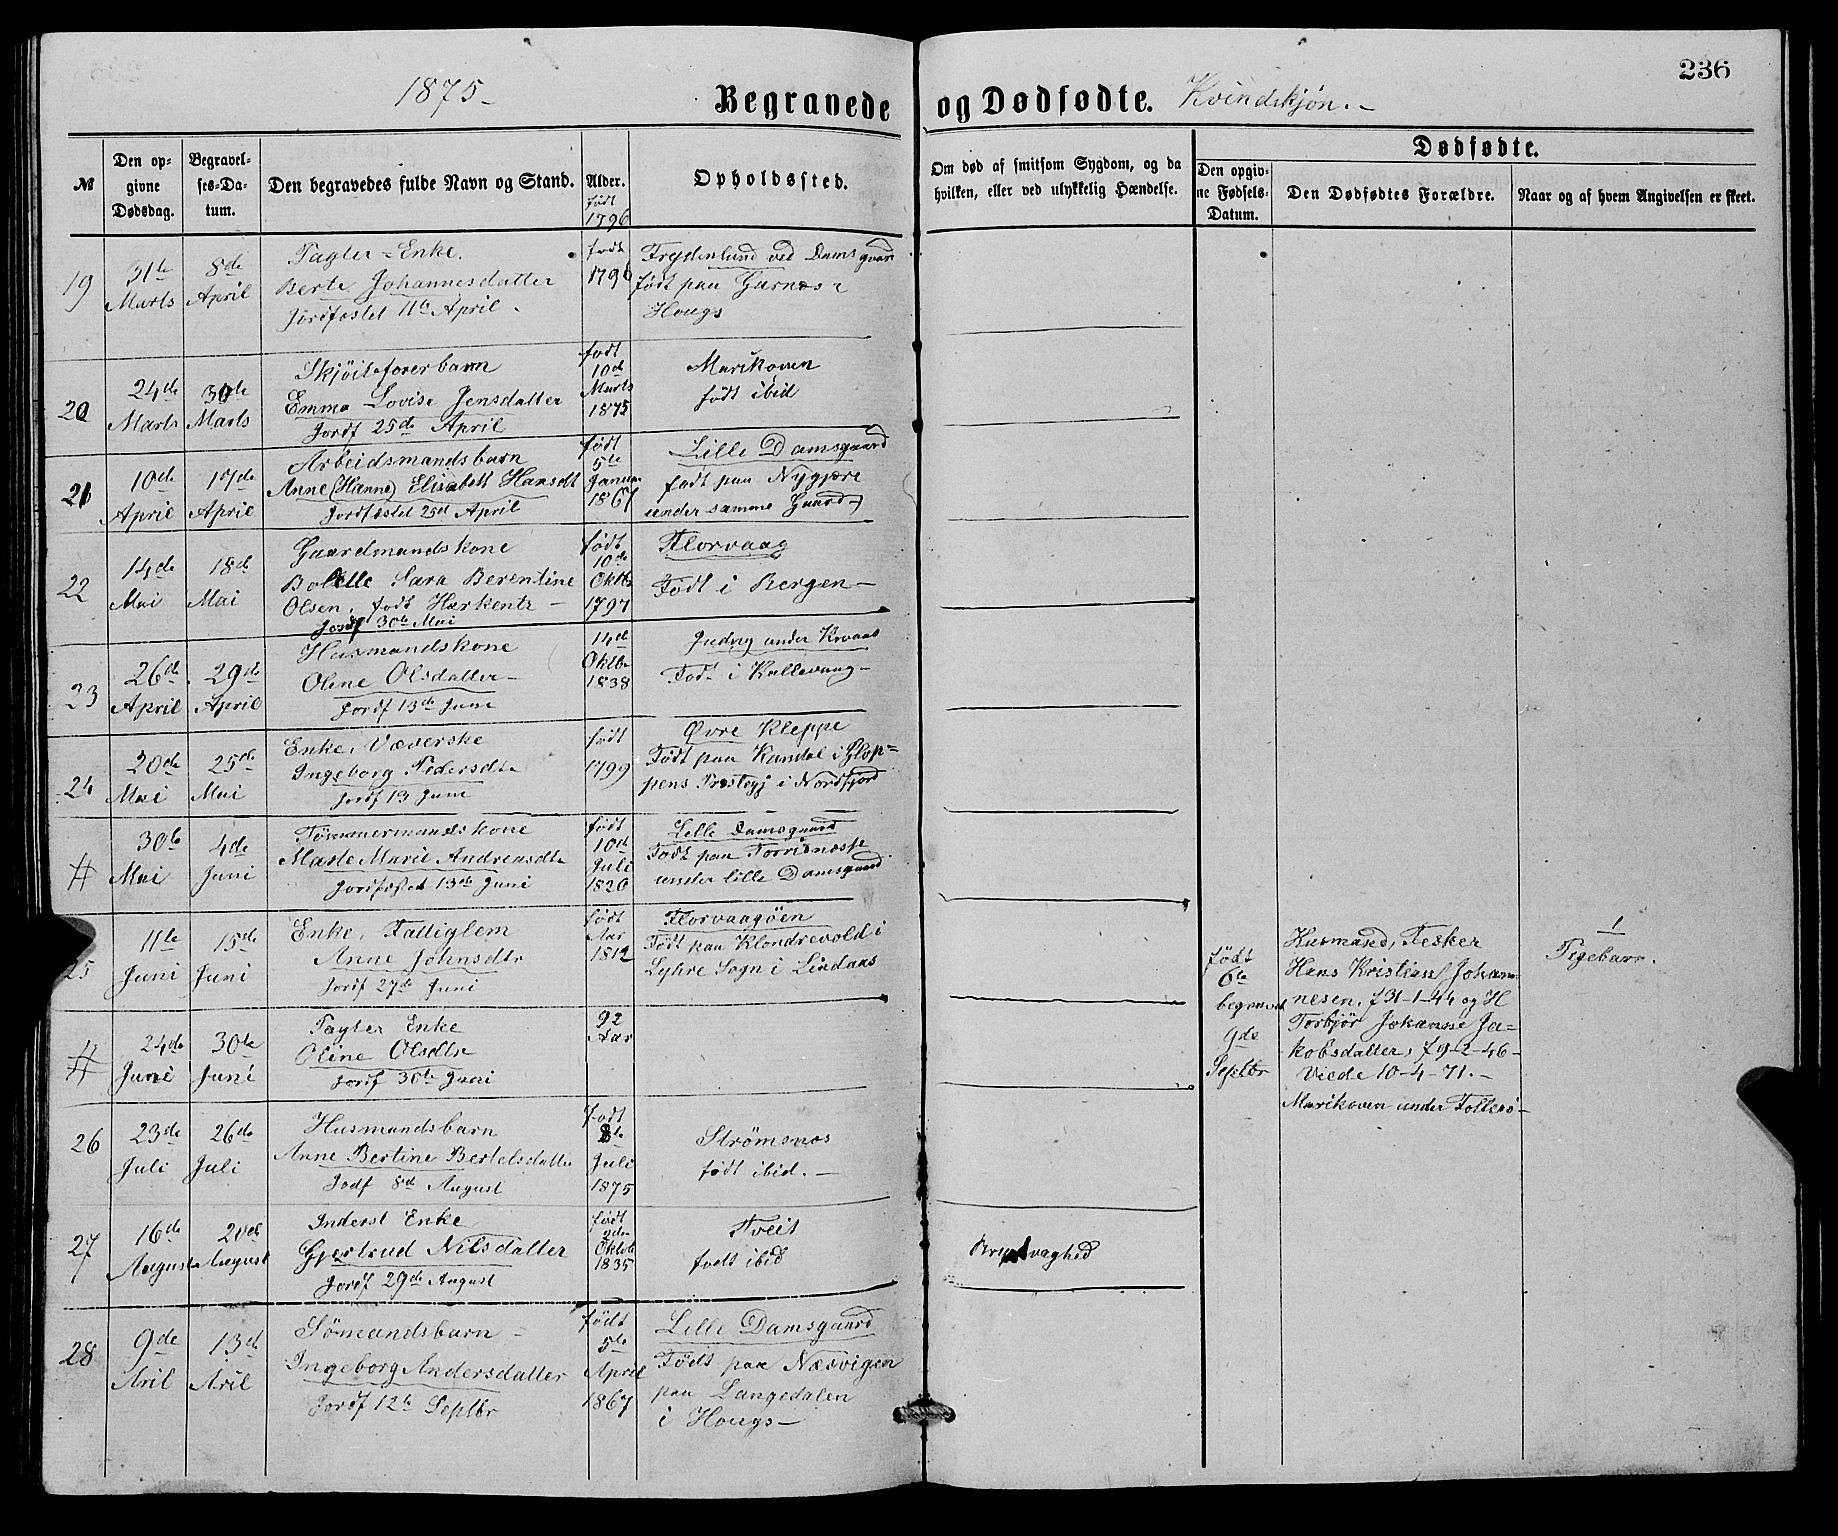 1875
Begravede og Dødfødte. Kvindskjøn.
236
№
Den opgivne Dødsdag.
Begravelses-Datum.
Den begravedes fulde Navn og Stand.
Alder.
født
1796
Opholdssted.
Om død af smitsom Sygdom, og da
hvilken, eller ved ulykkelig Hændelse.
Dødfødte.
Den opgivne Fødsels-Datum.
Den Dødfødtes Forældre.
Naar og af hvem Angivelsen er skeet.
19
31te Marts
8de April
Enke.
Berte Johannesdatter
Jordfæstet 11te April
født
1796
Frydenlund ved Damsgaard
født paa Garnæs
Hougs
20
24de Marts
30te Marts
Skjøiteførerbarn
Emma Lovise Jensdatter
Jordf 25de April
født
10de
Marts
1875
Marikoven
født ibid
21
10de April
17de April
Arbeidsmandsbarn
Anne (Hanne) Elisabett Hansdt
Jordfæstet 25d April
født
5te
Januar
1867
Lille Damsgaard
født paa Nygjære
under samme Gaard
22
14de Mai
18de Mai
Gaardmandskone
Bolette Sara Berentine
Olsen, født Harkents
Jordf 30te Mai
født
10de
Oktbr
1797
Florvaag
Født i Bergen
23
26de April
29de April
Husmandskone
Oline Olsdatter
Jordf 13de Juni
14de
Oktbr
1838
under Kvaas
Født i Kallevaag
24
20de Mai
25de Mai
Enke, Væverske
Ingeborg Pedersdtr
Jordf 13 Juni
født
1799
Øvre Kleppe
Født paa Kandal i Glop=
pens Prestegj i Nordfjord
#
30te Mai
4de Juni
Tømmermandskone
Marte Marie Andreasdtr
Jordfæstet 13de Juni
født
10de
Juli
1820
Lille Damsgaard
Født paa
under lille Damsgaard
25
11te Juni
15de Juni
Enke, Fattiglem
Anne Johnsdtr
Jordf 27de Juni
født
Aar
1812
Florvaagøen
Født paa Klondrevold i
Lyhre Sogn i Lindaas
#
24de Juni
30te Juni
Enke
Oline Olsdtr
Jordf 30te Juni
92
Aar
26
23de Juli
26de Juli
Husmandsbarn
Anne Bertine Bertelsdatter
Jodf 8de August
Født
Juli
1875
Strømsnæs
født ibid.
27
16de August
20de August
Inderst Enke
Gjertrud Nilsdatter
Jordf 29de August
født
2den
Oktob
1835
Tveit
født ibid
28
9de Aril
13de Aril
Sømandsbarn
Ingeborg Andersdatter
Jordf 12te Septbr
født
5te
April
1867
Lille Damsgaard
Født paa Næsvigen
paa Langedalen
i Hougs
født
6te
begravet
9de
Septbr
Husmand, Fisker
Hans Kristian Johan-
nesen, f 31-1-44 og H
Torbjør Johanne Ja-
kobsdatter, f 9-2-46-
Viede 10-4-71.-
Marikoven under
1
Pigebarn.